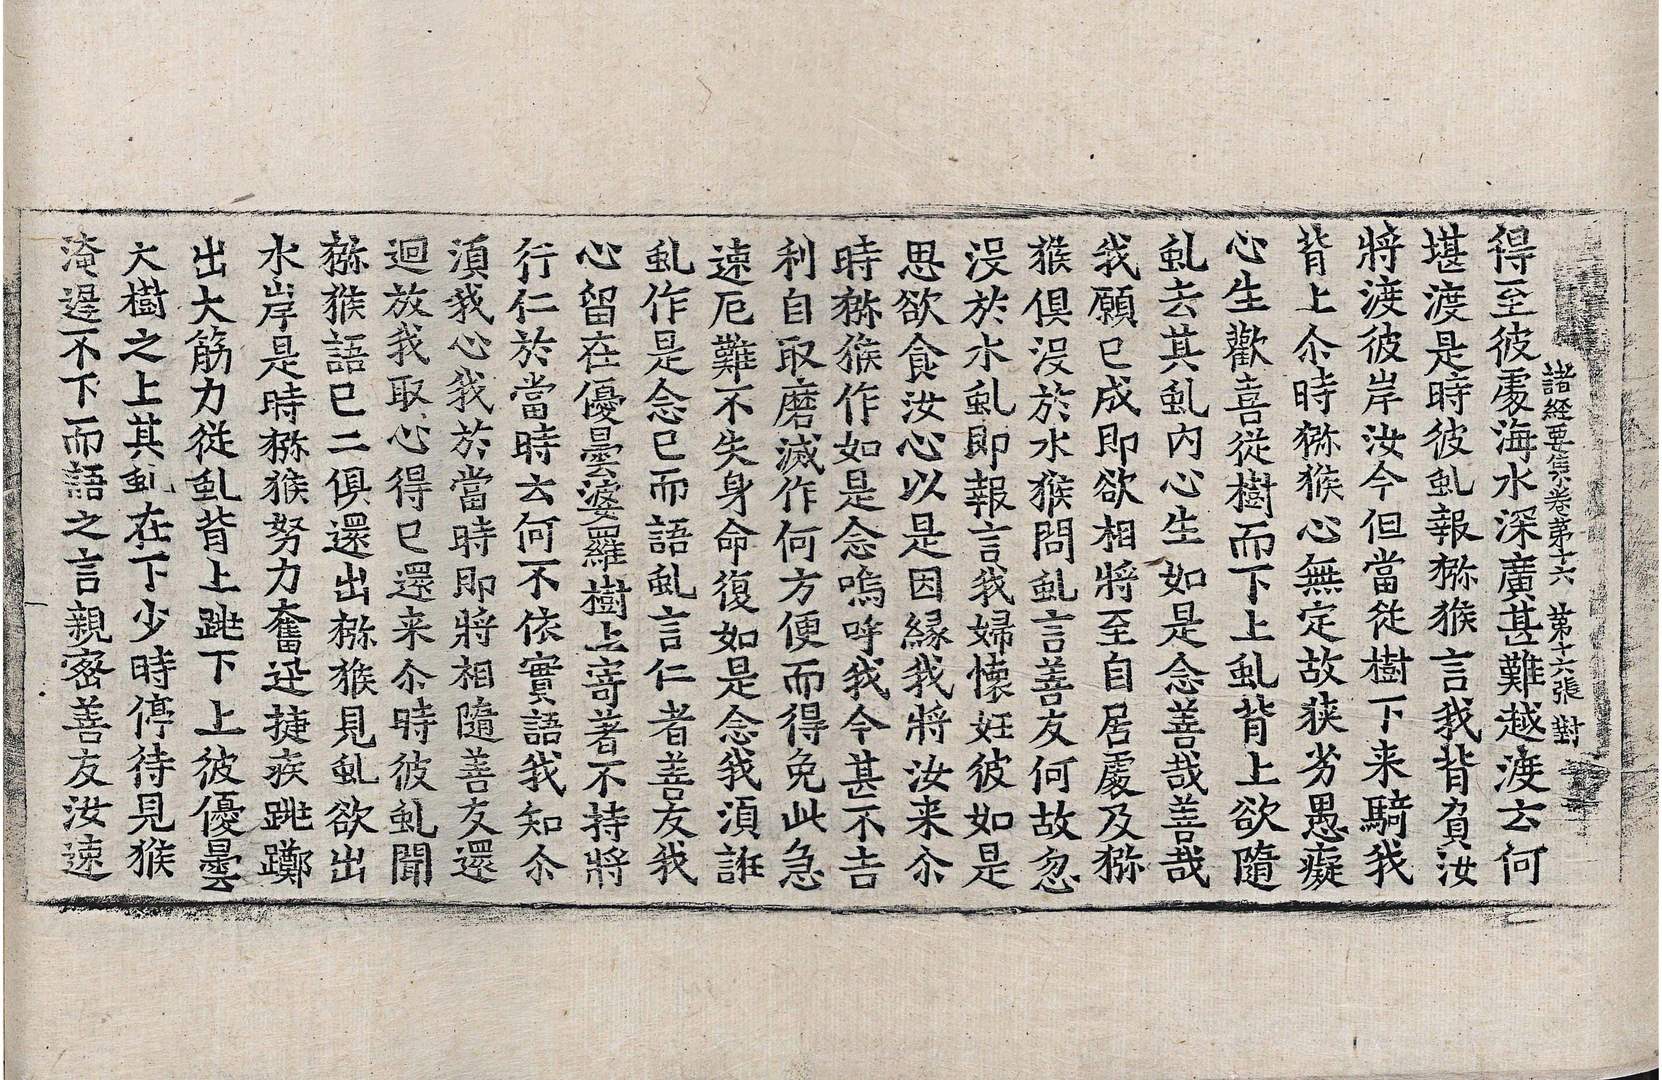 諸經要集卷第十六　第十六張　對
得至彼處海水深廣甚難越渡云何
堪渡是時彼虬報猕猴言我背負汝
將渡彼岸汝今但當従樹下来騎我
背上尒時猕猴心無定故狭劣愚癡
心生歡喜従樹而下上虬背上欲隨
虬去其虬内心生如是念善哉善哉
我願已成即欲相將至自居處及猕
猴俱没於水猴問虬言善友何故忽
没於水虬即報言我婦懷妊彼如是
思欲食汝心以是因緣我將汝来尒
時猕猴作如是念嗚呼我今甚不吉
利自取磨滅作何方便而得免此急
速厄難不失身命復如是念我湏誑
虬作是念已而語虬言仁者善友我
心留在優曇婆羅樹上寄著不持將
行仁於當時云何不依實語我知尒
湏我心我於當時即將相隨善友還
迴放我取心得已還来尒時彼虬聞
猕猴語已二俱還出猕猴見虬欲出
水岸是時猕猴努力奮迅捷疾跳躑
出大筋力従虬背上跳下上彼優曇
大樹之上其虬在下少時停待見猴
淹遲不下而語之言親密善友汝速